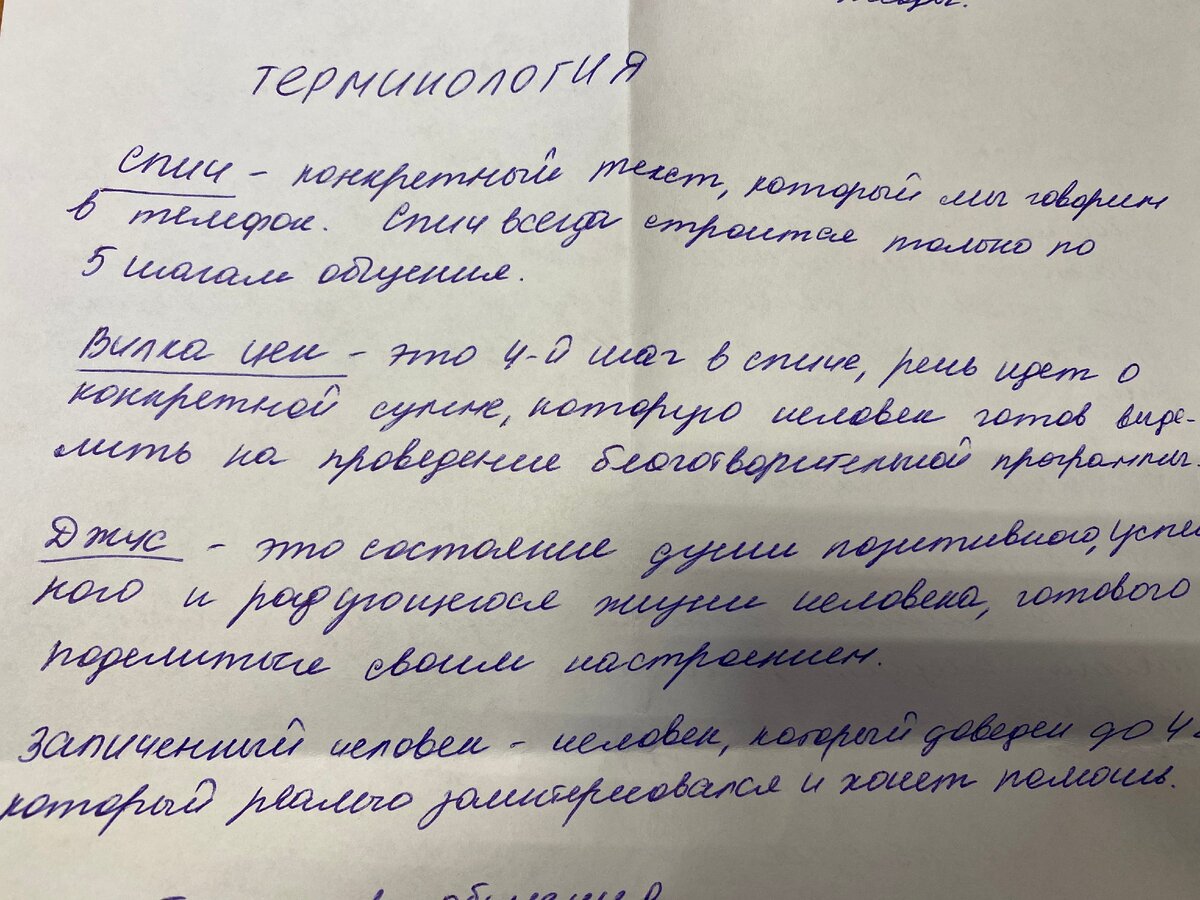 ТЕРМИНОЛОГИЯ
Спич - конкретный текст, который мы говорим
в телефон. Спич всегда строится только по
5 шагам общения.
Вилка цен - это 4-й шаг в спиче, речь идет о
конкретной сумме, которую человек готов виде-
лить на проведение благотворительной программы.
Джус - это состояние души позитивного, успеш
ного и радующегося жизни человека, готового
поделиться своим настроением.
Запиченный человек - человек, который доведен до 4
который реально заинтерисовался и хочет помошь.
общения